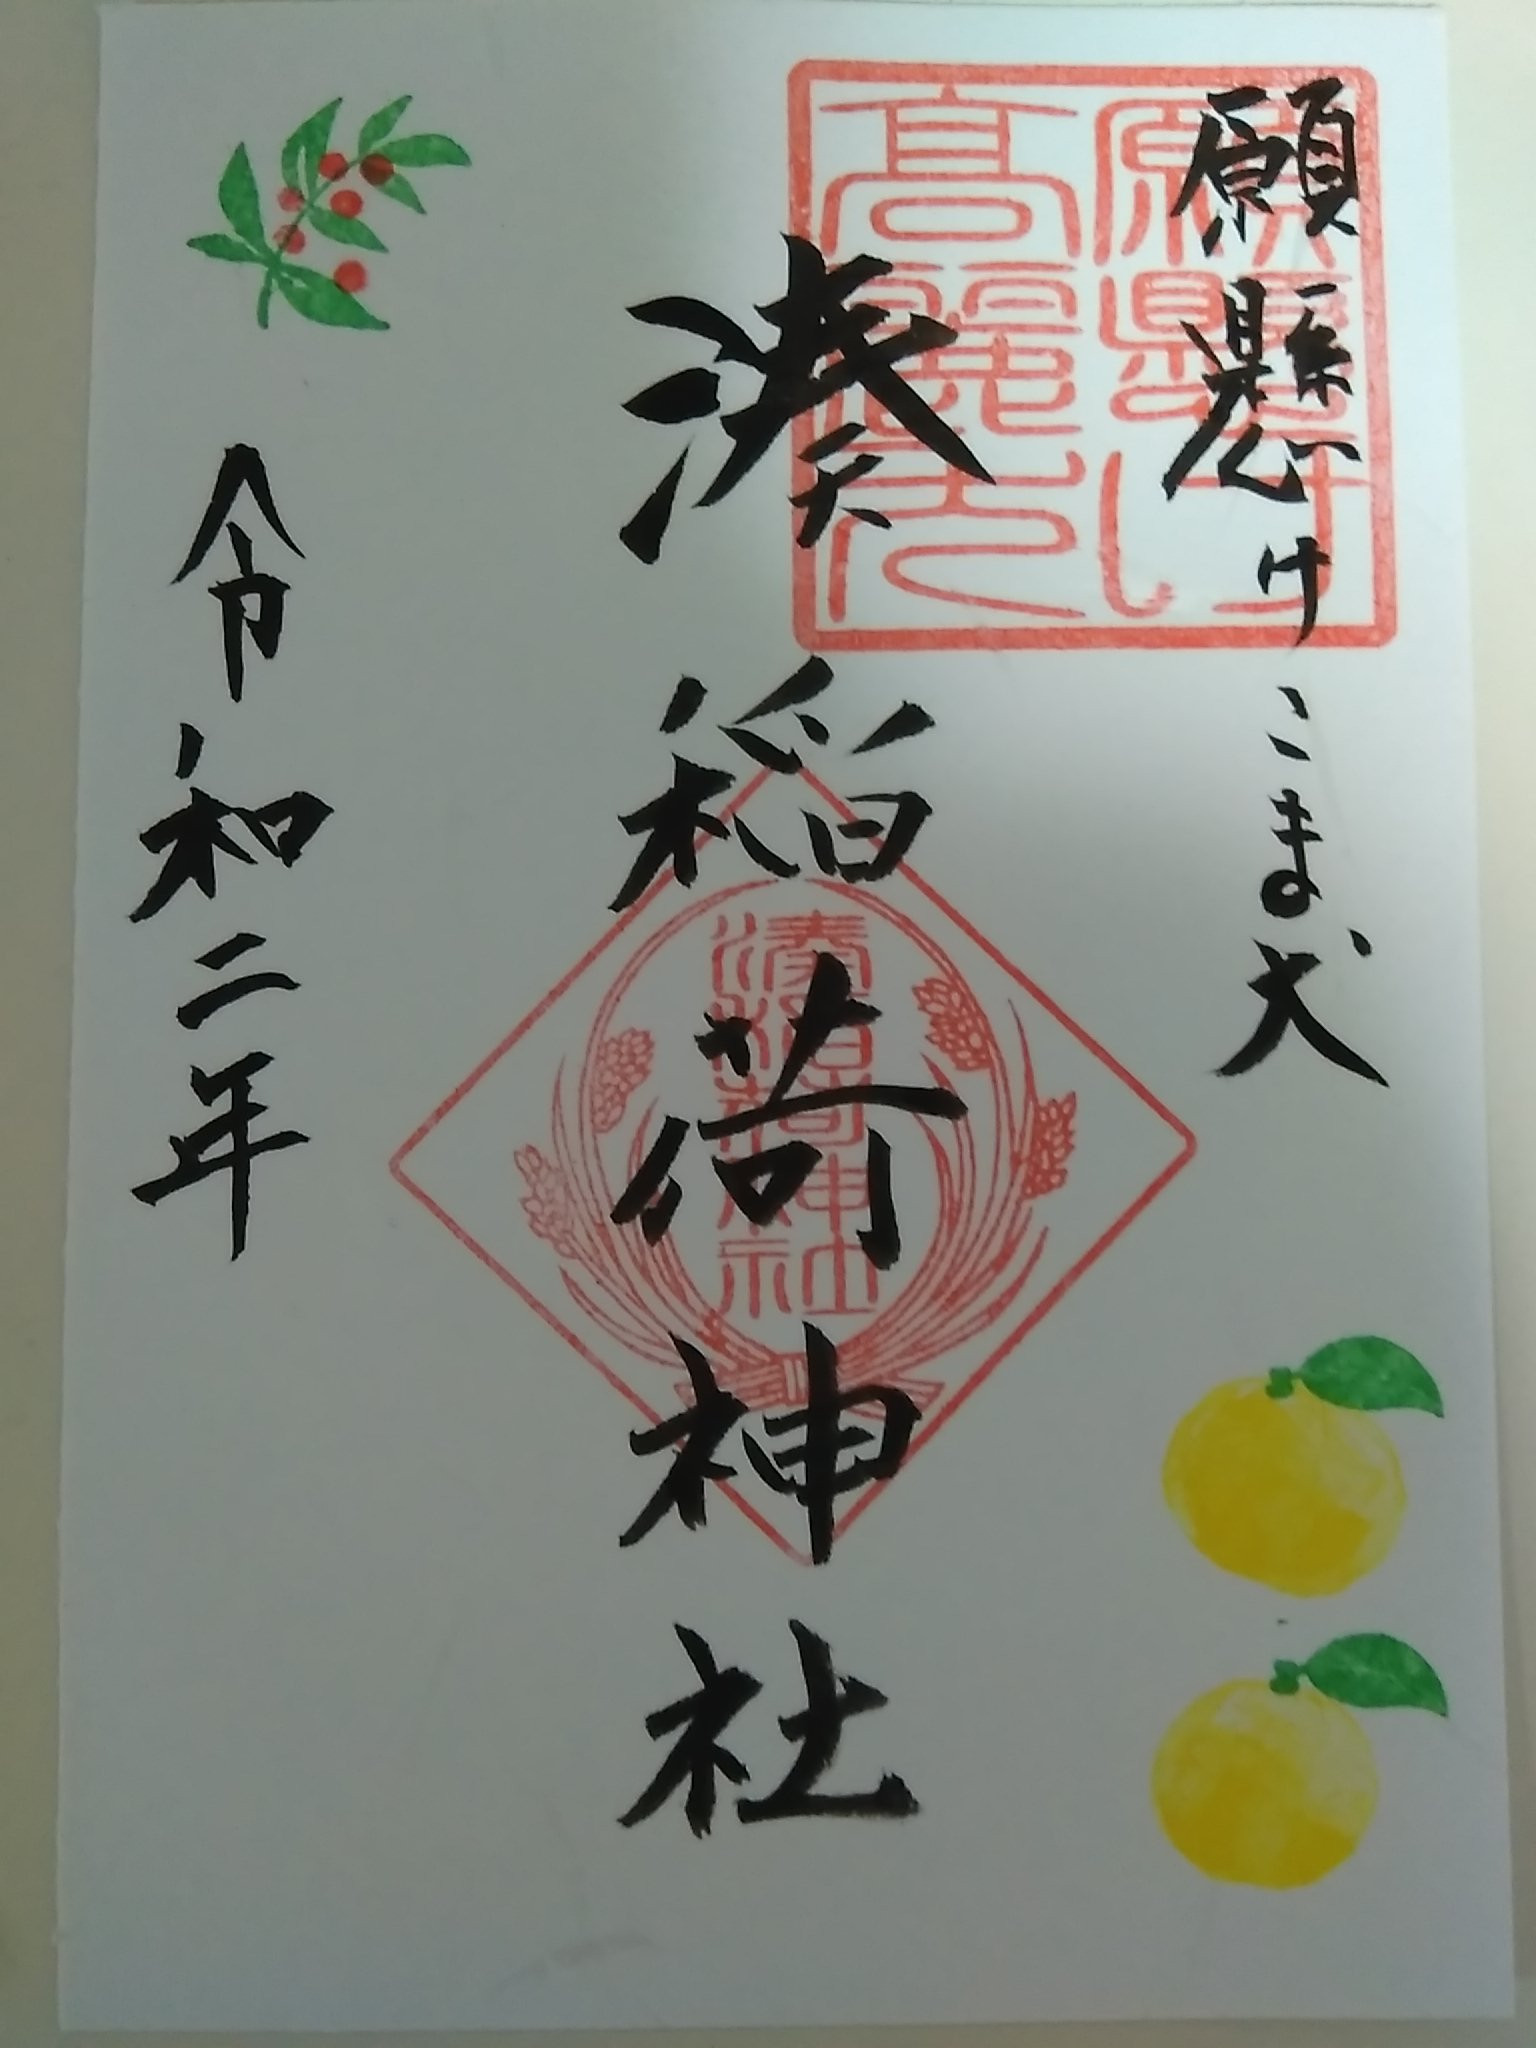 願懸けこま犬
湊稲荷神社
令和二年
願懸け
高麗犬
湊稲荷神社